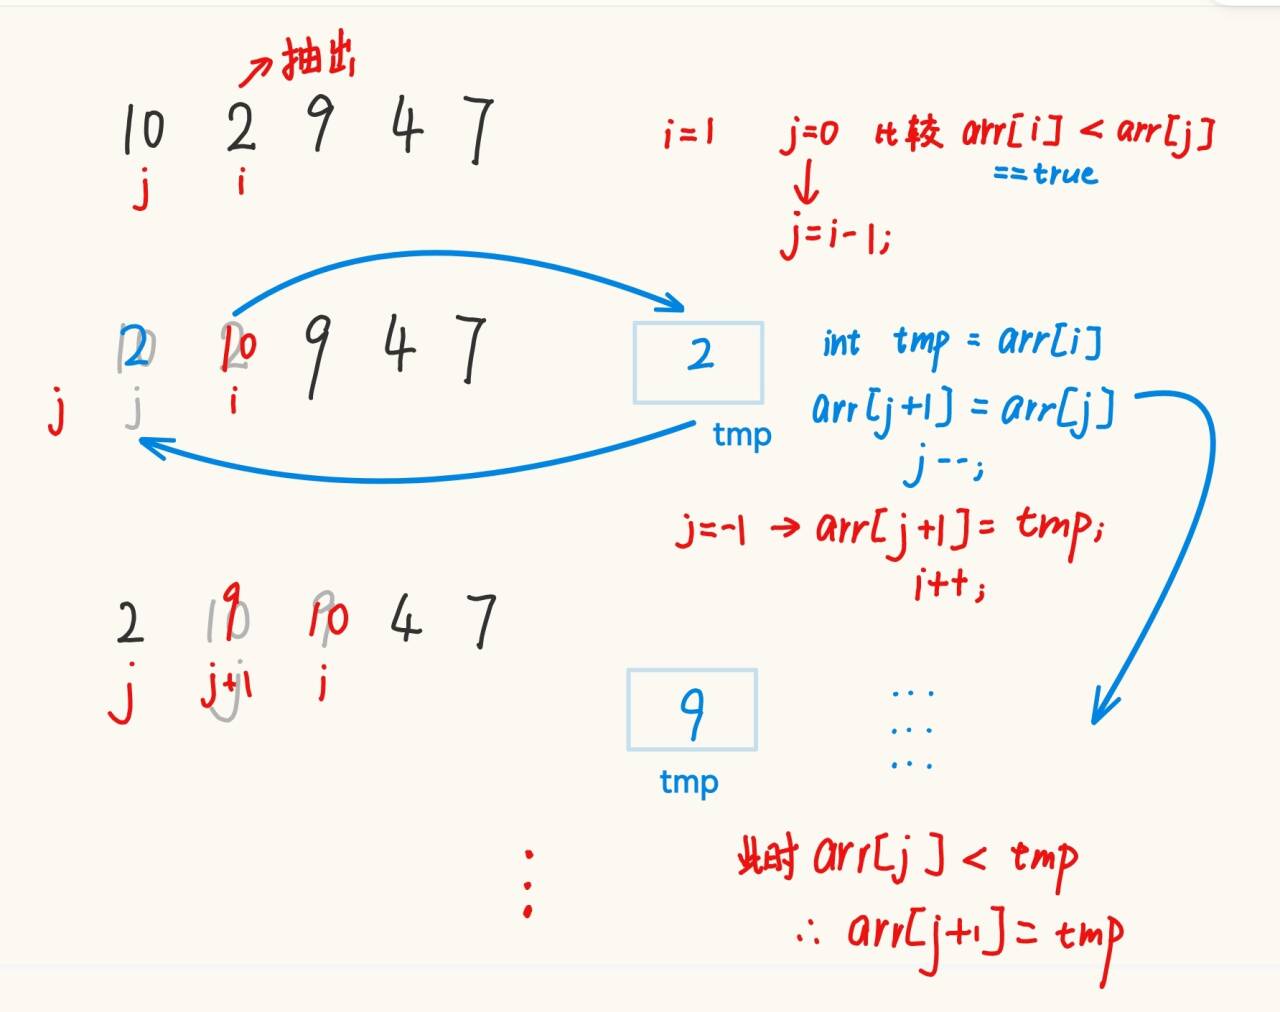 抽出
10 2 9 4 7
j i
i=1 j=0 比较 arr[i] < arr[j]
==true
j=i-1;
2 10 9 4 7
j j i
2
tmp
int tmp = arr[i]
arr[j+1] = arr[j]
j--;
j=-1 → arr[j+1]= tmp;
i++;
2 9 10 4 7
j j+1 i
9
tmp
...
...
...
此时 arr[j] < tmp
∴ arr[j+1]= tmp